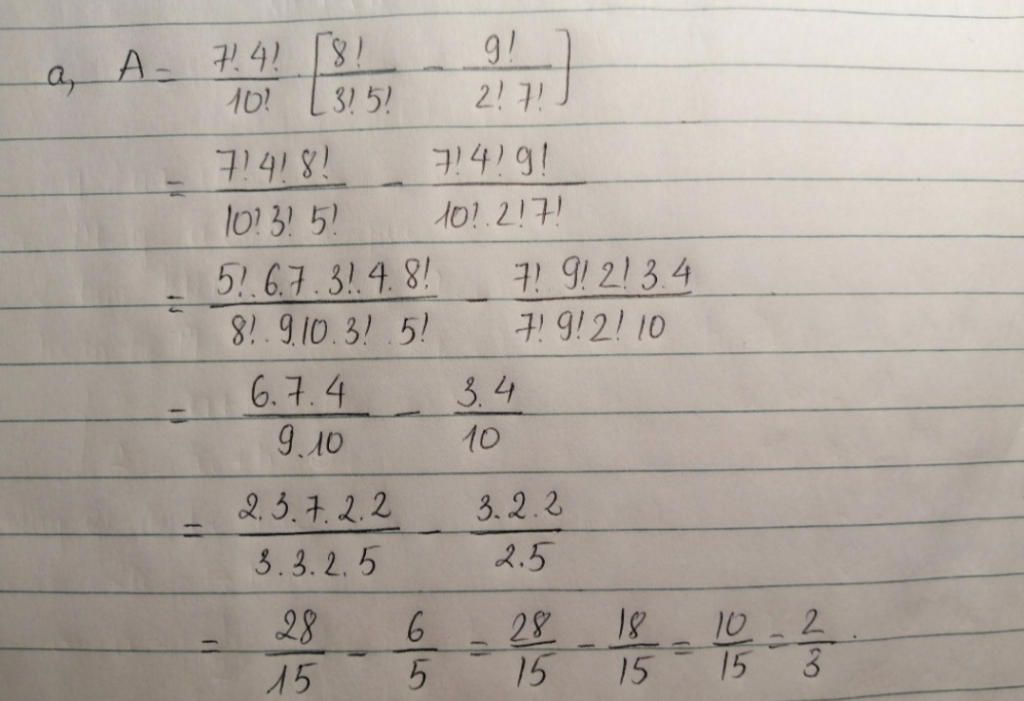 a, A = \frac{7! 4!}{10!} . \left[ \frac{8!}{3! 5!} - \frac{9!}{2! 7!} \right]
= \frac{7! 4! 8!}{10! 3! 5!} - \frac{7! 4! 9!}{10! . 2! 7!}
= \frac{5! . 6.7 . 3! . 4 . 8!}{8! . 9.10 . 3! . 5!} - \frac{7! 9! 2! 3.4}{7! 9! 2! 10}
= \frac{6.7.4}{9.10} - \frac{3.4}{10}
= \frac{2.3.7.2.2}{3.3.2.5} - \frac{3.2.2}{2.5}
= \frac{28}{15} - \frac{6}{5} = \frac{28}{15} - \frac{18}{15} = \frac{10}{15} = \frac{2}{3} .